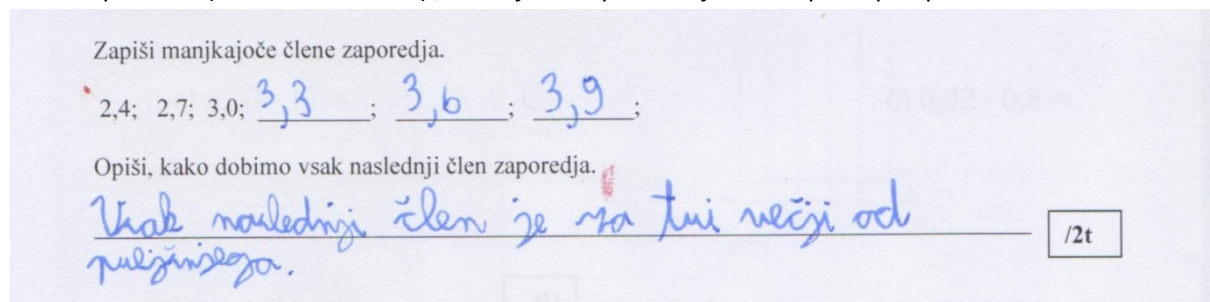 Zapiši manjkajoče člene zaporedja.
2,4; 2,7; 3,0; 3,3; 3,6; 3,9;
Opiši, kako dobimo vsak naslednji člen zaporedja.
Vsak naslednji člen je za tri večji od
/2t
prejšnjega.